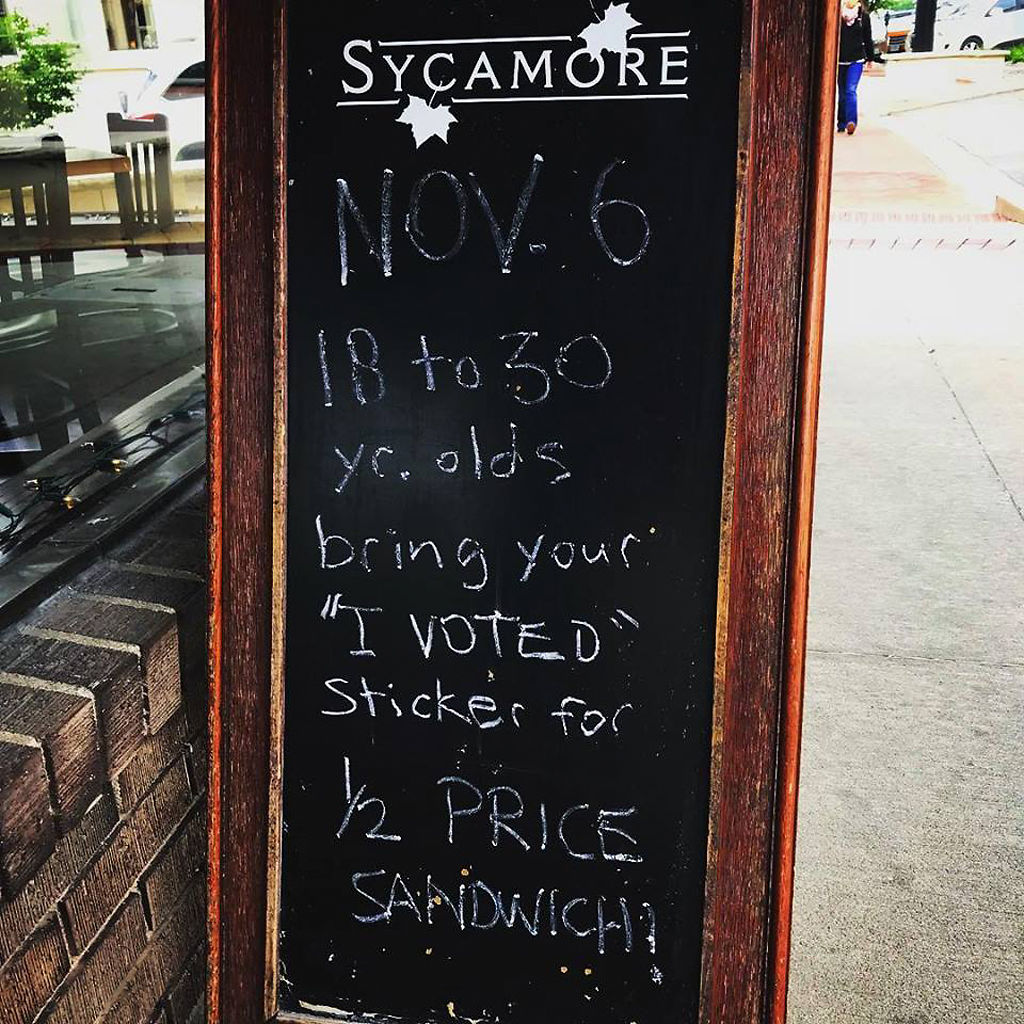 SYCAMORE
NOV. 6
18 to 30
yr. olds
bring your
"I VOTED"
sticker for
1/2 PRICE
SANDWICH!